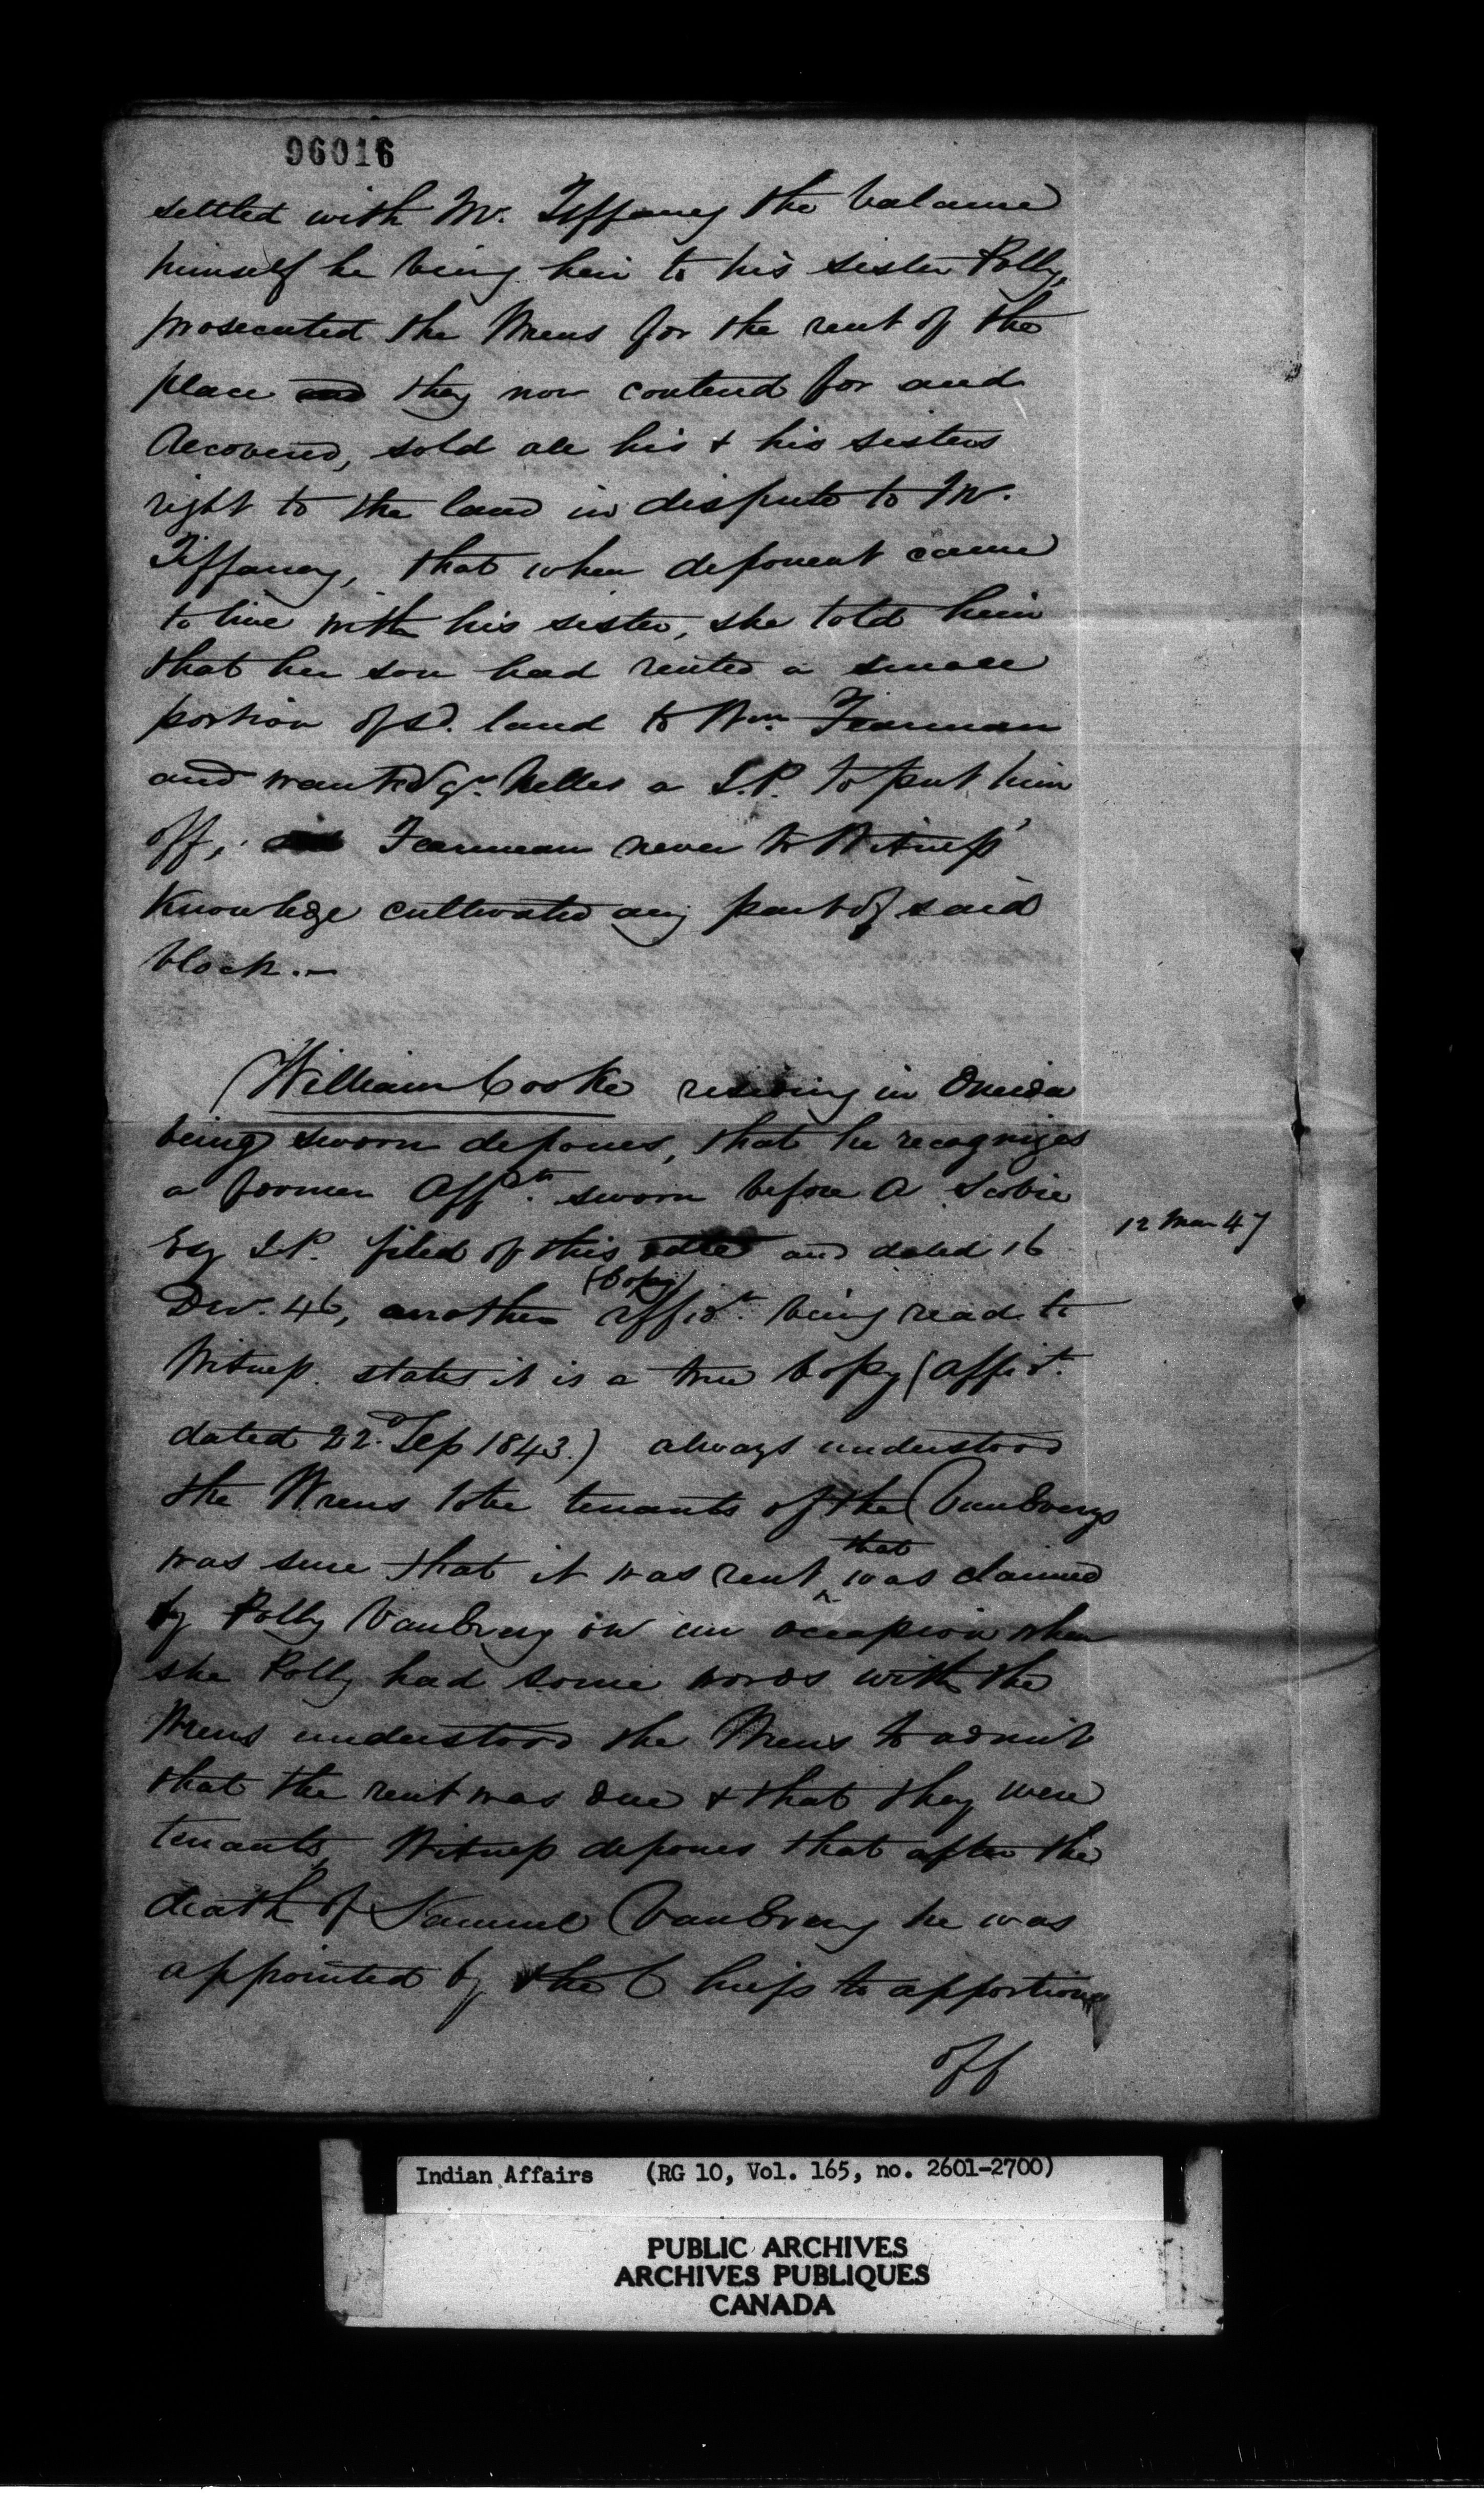 96016
settled with Mr. Tiffaney the balance
himself he being heir to his sister Polly,
prosecuted the Wrens for the rent of the
place they now contend for and
recovered, sold all his & his sisters
right to the land in dispute to Mr.
Tiffaney, that when deponent came
to live with his sister, she told him
that her son had rented a small
portion of sd. land to Wm. Fearman
and wanted Nelles a J.P. to put him
off, Fearman never to Witness'
Knowledge cultivated any part of said
block.—
William Cooke residing in Oneida
being sworn depones, that he recognizes
a former Affdt. sworn before A Scobie
Esq J.P. filed of this and dated 16
12 Mar 47
Decr. 46, another (Copy) affidt. being read to
Witness states it is a true Copy (affidt.
dated 22d. Sep 1843.) always understood
the Wrens to be tenants of the VanEverys
was sure that it was rent that was claimed
by Polly VanEvery on an occassion when
she Polly had some words with the
Wrens understood the Wrens to admit
that the rent was due & that they were
tenants, Witness depones that after the
death of Samuel VanEvery he was
appointed by the Chiefs to apportion
off
Indian Affairs (RG 10, Vol. 165, no. 2601-2700)
PUBLIC ARCHIVES
ARCHIVES PUBLIQUES
CANADA